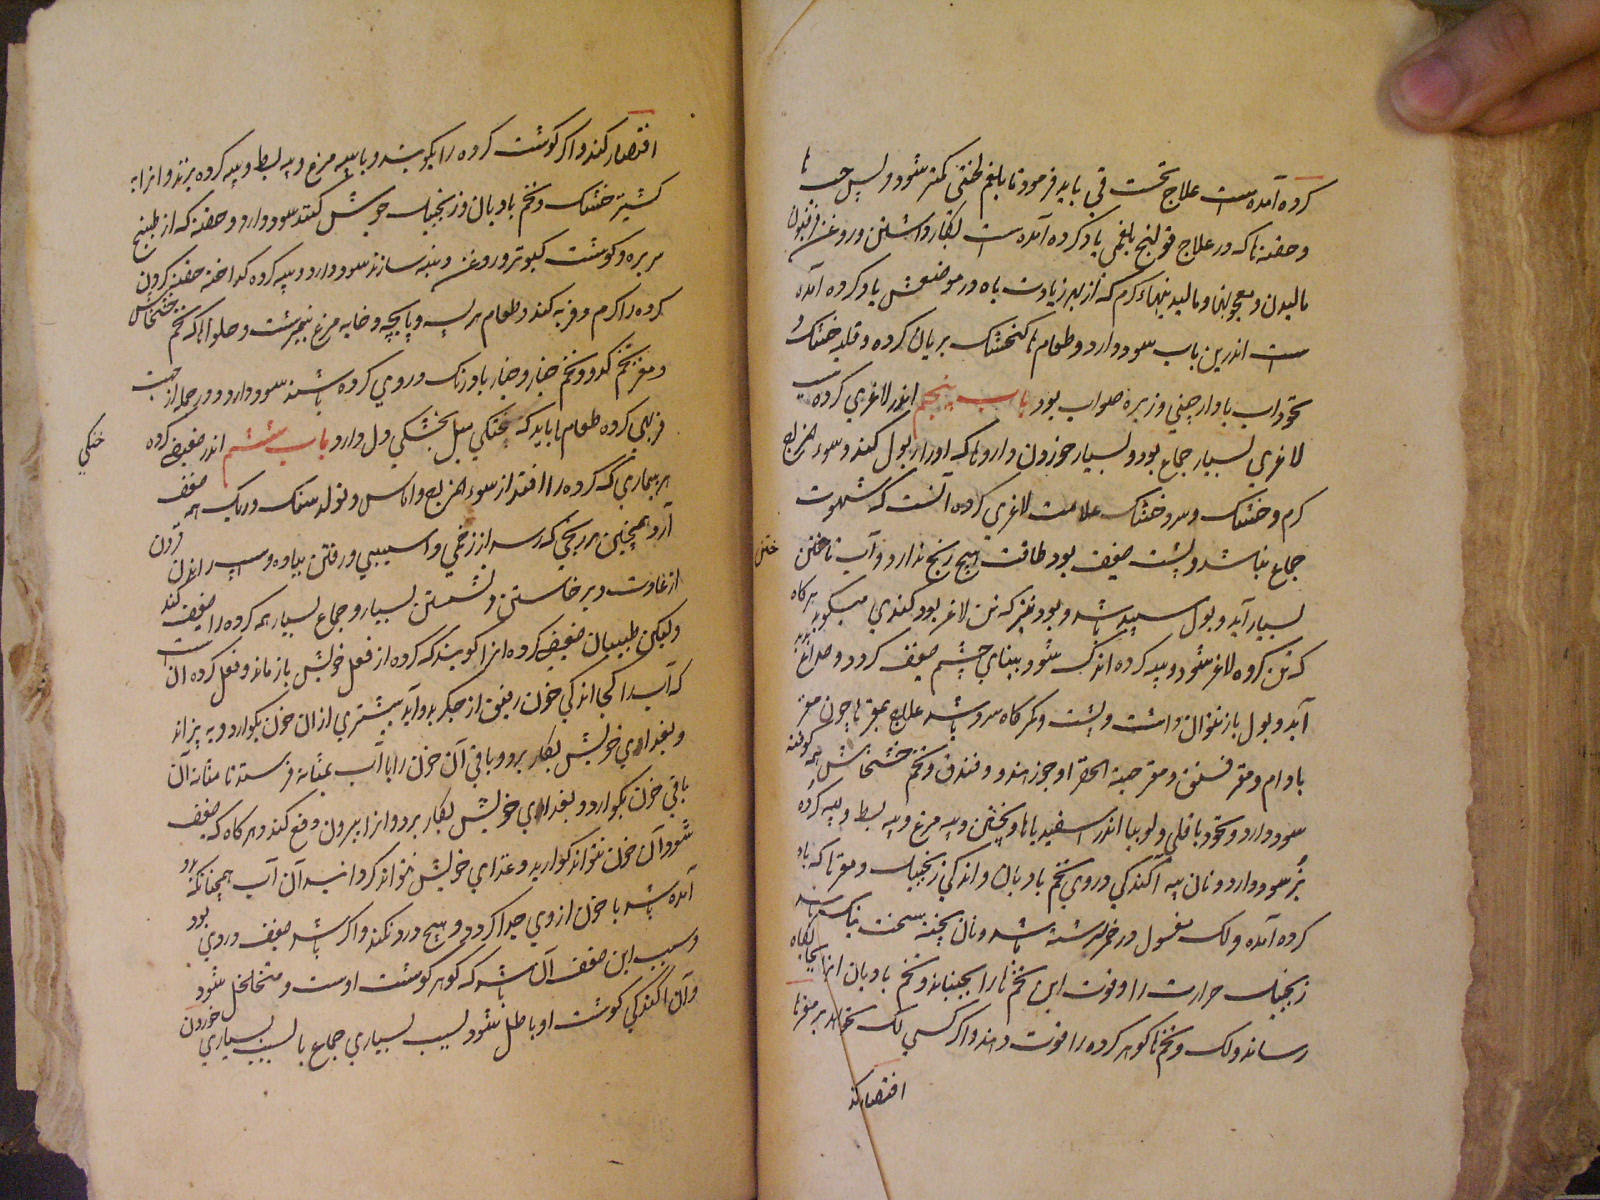 کرده آمده است علاج نخست قی باید فرمود تا بلغم لختی کمتر شود و پس حب ها
و حقنه ها که در علاج قولنج بلغمی یاد کرده آمده است بکار داشتن و روغن فرفیون
مالیدن و معجونها و مالیدنیهاء کرم که از بهر زیادت باه در موضعش یاد کرده آمده
است اندرین باب سود دارد و طعام ها کنجشک بریان کرده و قلیه خشک و
نخوداب با دارچینی و زیره صواب بود باب پنجم اندر لاغری کرده سبب
لاغری بسیار جماع بود و بسیار خوردن داروها که ادرار بول کند و سوء المزاج
کرم و خشک و سرد و خشک علامت لاغری کرده آنست که شهوت
جماع نباشد و پشت ضعیف بود طاقت هیچ رنج ندارد و آب تاختن
بسیار آید و بول سپید باشد و بود نیز که تن لاغر بود کندی میکوید هرکاه
که تن کرده لاغر شود و پیه کرده اندک شود بینای چشم ضعیف کردد و صداع پدید
آید و بول باز نتوان داشت و پشت و کمرکاه سرد باشد علاج مغزها چون مغز
بادام و مغز فستق و مغز حبة الخضرا و جوز هندو و فندق و تخم خشخاش همه کوفته
سود دارد و نخود باقلی و لوبیا اندر اسفیدباها و پختن و پیه مرغ و پیه بط و پیه کرده
بز سود دارد و نان پیه آکندکی و روی تخم بادیان و اندکی زنجبیل و مغزها که یاد
کرده آمده و لک مغسول در خمر سرشته باشد و نان پخته سخت نیک باشد
زنجبیل حرارت را و قوت این تخم ها را بجنباند و تخم بادیان انرا بجایکاه
رساند و لک و تخم ها کوهر کرده را قوت دهند و اکر کسی لک نخواهد بر مغزها
اقتصار کند
ختن
اقتصار کند و اکر کوشت کرده را بکوبند و با پیه مرغ و پیه بط و پیه کرده بزند و انرا به
کشنیز خشک و تخم بادیان و زنجبیل خوش کنند سود دارد و حقنه که از طبیخ
سر بره و کوشت کبوتر و روغن و پنبه سازند سود دارد و پیه کرده کداخته حقنه کردن
کرده را کرم و فربه کند و طعام هریسه و پاچه و خایه مرغ نیمبرشت و حلواها که تخم خشخاش
و مغز تخم کدو و تخم خیار و خیار بادرنک در وی کرده باشند سود دارد و در جمله از جهت
فربهی کرده طعامها باید که بختکی میل بخشکی ول دارد باب ششم اندر ضعیفی کرده
هر بیماری که کرده را افتد از سوء المزاج و اماس و تولد سنک و ریک همه ضعف
آرد و همچنین هر رنجی که رسد از زخمی و اسیبی و رفتن پیاده و سپ راندن
از عادت و بر خاستن و نشستن بسیار و جماع بسیار همه کرده را ضعیف کند
ولیکن طبیبان ضعیفی کرده انرا کویند که کرده از فعل خویش باز ماند و فعل کرده ان است
که آب را کجا اندکی خون رقیق از جکر بدو آید بیشتری از ان خون بکوارد و بپزاند
و بغدای خویش بکار برد و باقی آن خون را با آب بمثانه فرستد تا مثانه آن
باقی خون بکوارد و بغدای خویش بکار برد و انرا بیرون دفع کند و هرکاه که ضعیف
شود آن خون نتواند کوارید و غذای خویش نتواند کردانید آن آب همچنانکه بدو
آمده باشد با خون از وی جدا کردد و هیچ درد نکند و اکر باشد ضعیف در وی بود
و سبب این ضعف آن باشد که کوهر کوشت اوست و متخلخل شود
و آن اکندکی کوشت او باطل شود بسبب بسیاری جماع یا بسبب بسیاری خوردن
خنکی